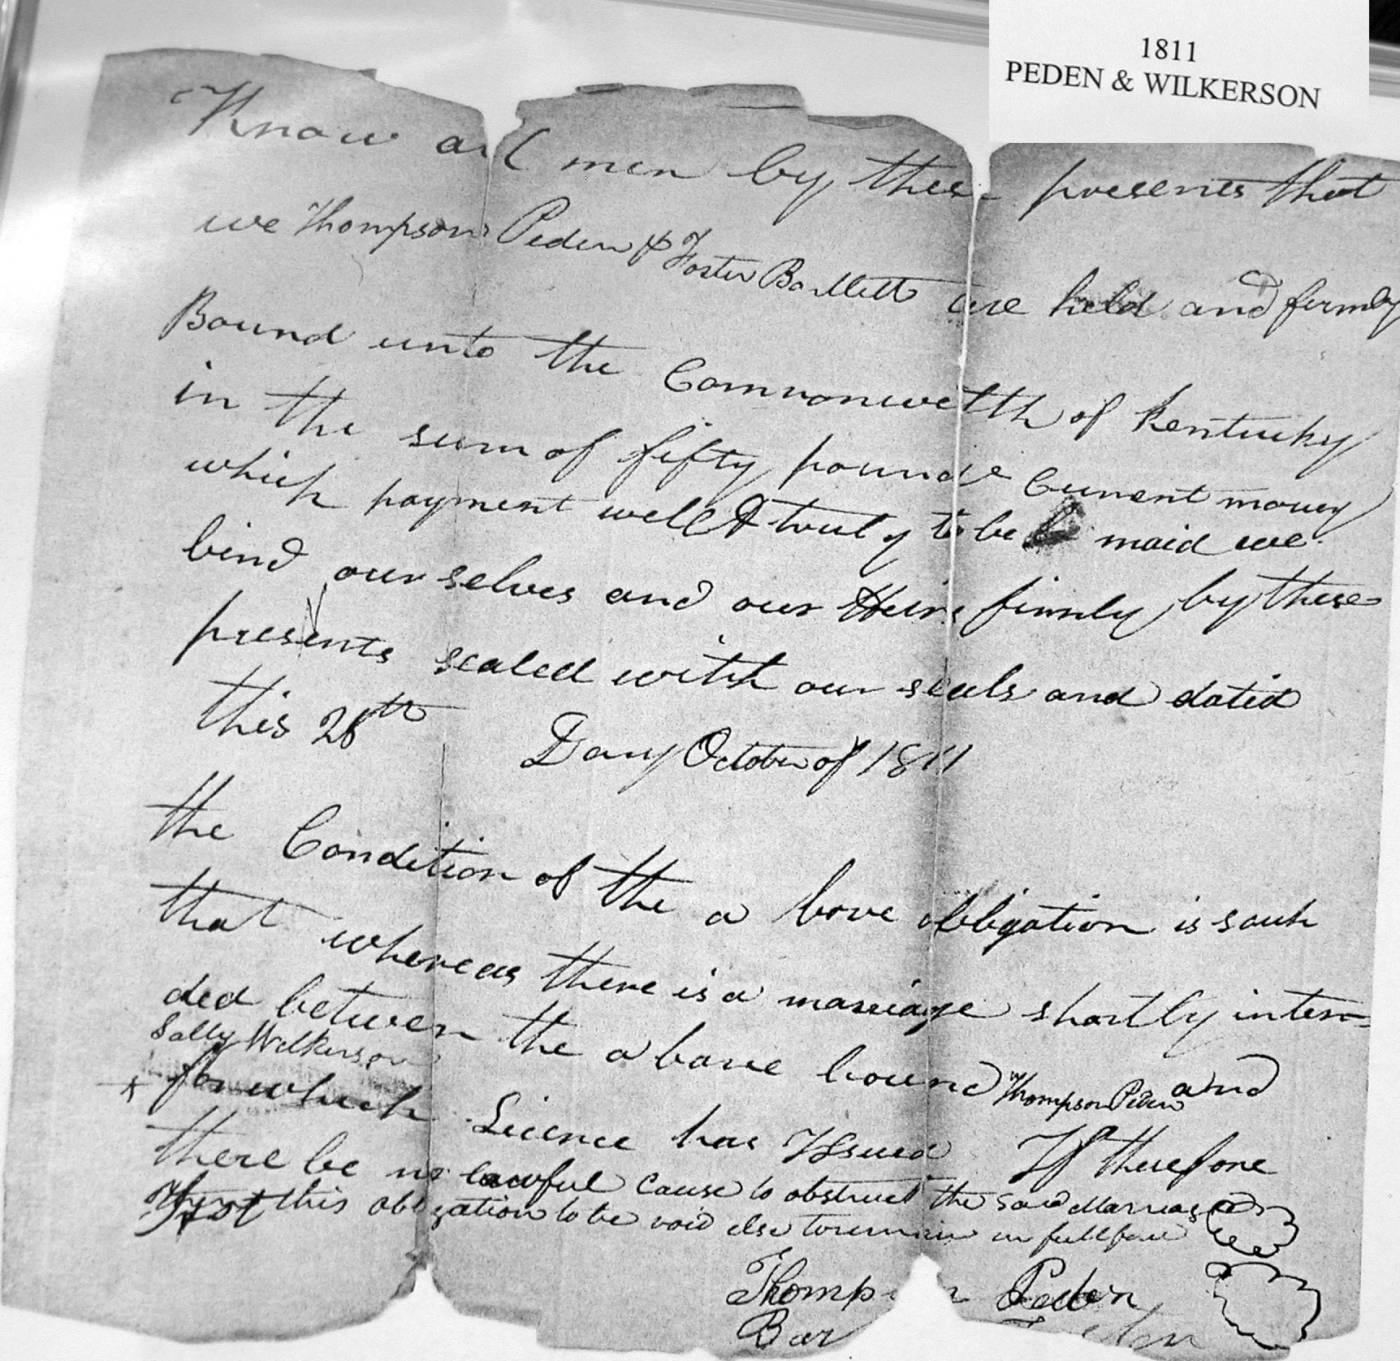 1811
PEDEN & WILKERSON
Know all men by these presents that
we Thompson Peden & Foster Bartlett are held and firmly
Bound unto the Commonwelth of Kentucky
in the sum of fifty pounds Current money
which payment well & truly to be maid we
bind ourselves and our Heirs firmly by these
presents sealed with our seals and datid
this 26th Day October of 1811
the Condition of the a bove obligation is such
that whereas there is a marriage shortly inten=
ded between the above bound Thompson Peden and
Sally Wilkerson
for which Licence has Issued If therefore
there be no lawful cause to obstruct the said Marriage
then this obligation to be void else to remain in full force
Thompson Peden
Bar